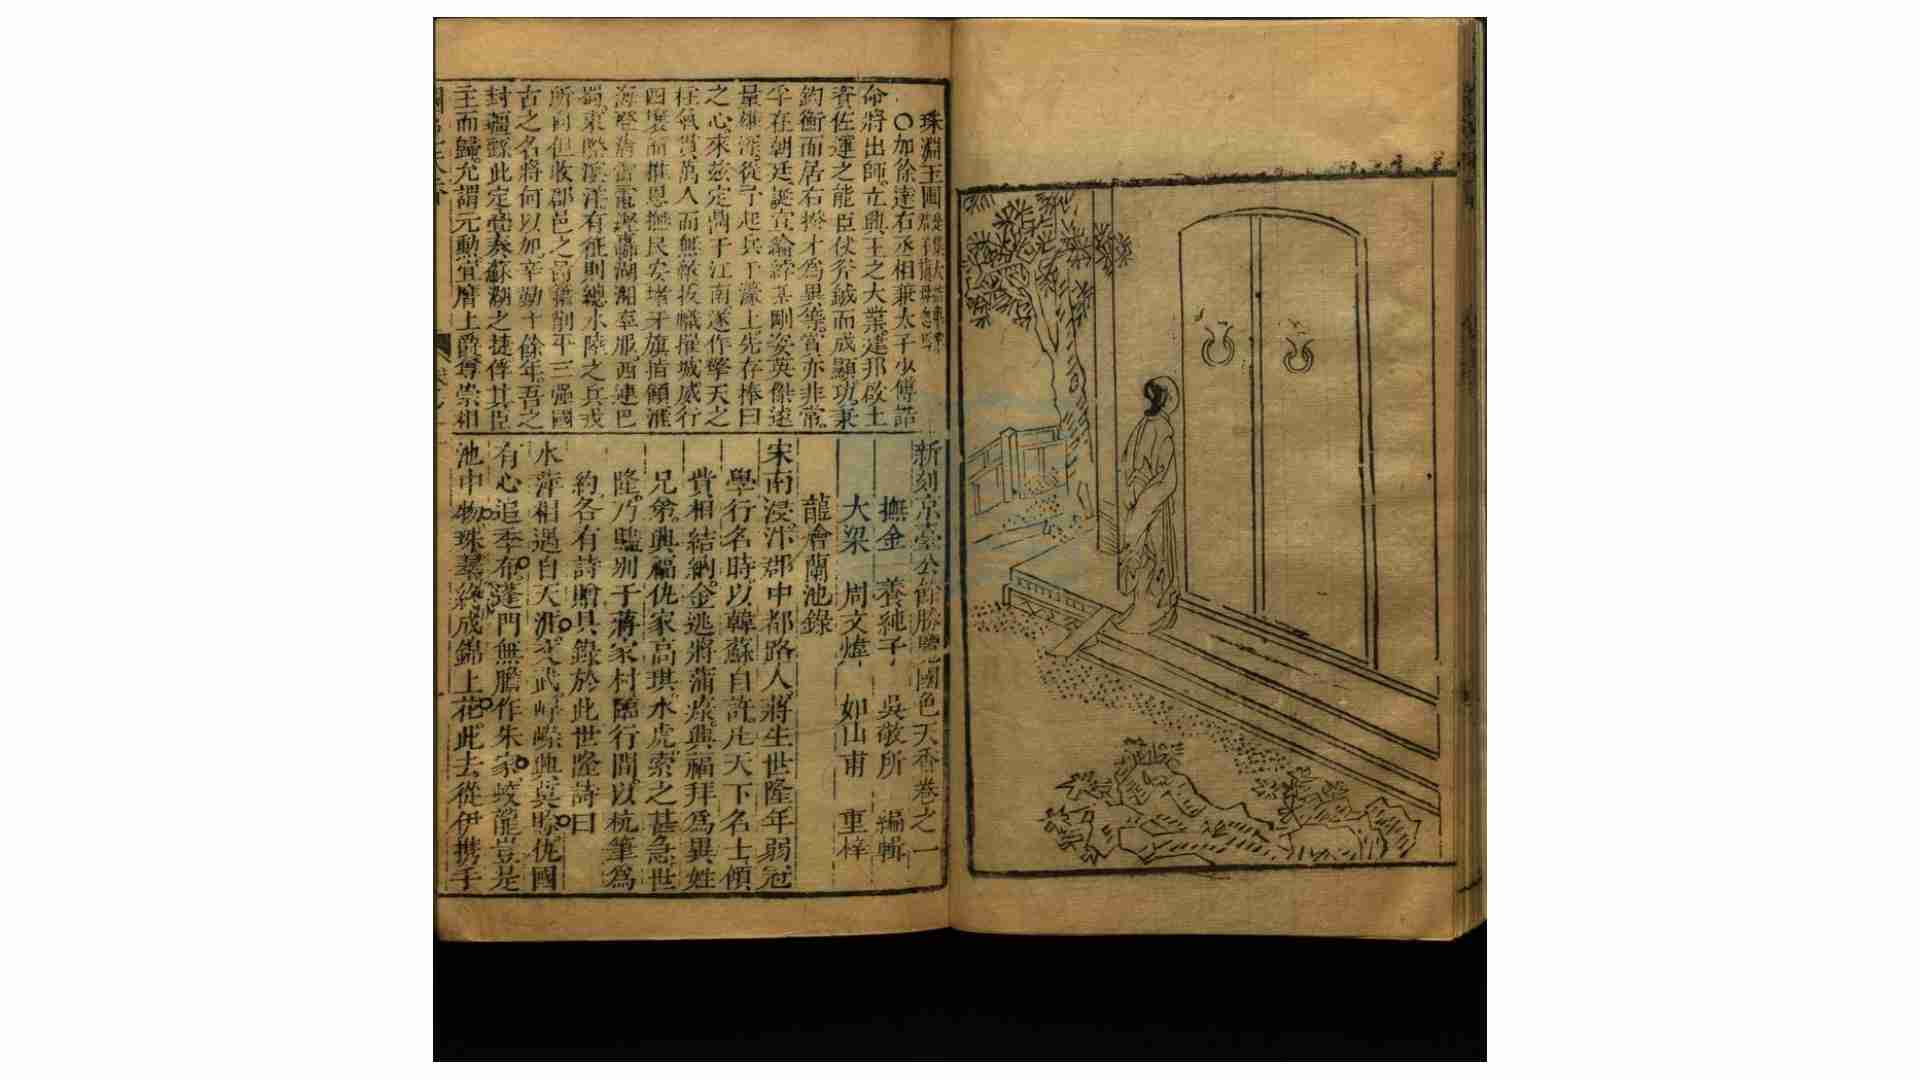 珠淵玉圃
○加徐達右丞相兼太子少傅誥
命將出師立興王之大業建邦啟土
資佐運之能臣仗斧鉞而成顯功秉
鈞衡而居右揆才為異等賞亦非常
孚在朝廷誕宣綸綍某剛姿英傑逵
量雄深從予起兵于濠上先存捧日
之心來茲定鼎于江南遂作擎天之
柱氣貫萬人而無敵拔幟摧城威行
四裏而推恩撫民安堵牙旗指顧淮
海澄清雷電 湖湘率服西連巴
蜀東際滇洋有征則總水陸之兵戎
所向但收郡邑之 籍削平三強國
古之名將何以加辛勤十餘年吾之
封疆繇此定 奏蘇湖之捷俘其臣
主而歸允謂元勳宜膺上爵尊崇相
新刻京臺公餘勝覽國色天香卷之一
撫金 養純子 吳敬所 編輯
大梁 周文煒 如山甫 重梓
龍會蘭池錄
宋南浸汴郡中都路人蔣生世隆年弱冠
學行名時以韓蘇自許凡天下名士傾
貲相結納金逃將蒲 興福拜為異姓
兄弟興福仇家高琪水虎索之甚急世
隆乃 別于蔣家村臨行間以杭筆為
約各有詩贈具錄於此世隆詩曰
水萍相遇自天涯文武崢嶸興莫賒仇國
有心追季布蓬門無膽作朱家蛟龍豈是
池中物珠 終成錦上花此去從伊携手